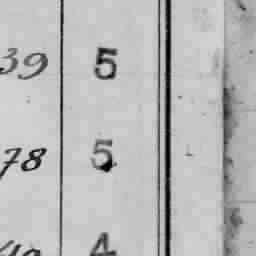 39 5
78 5
4